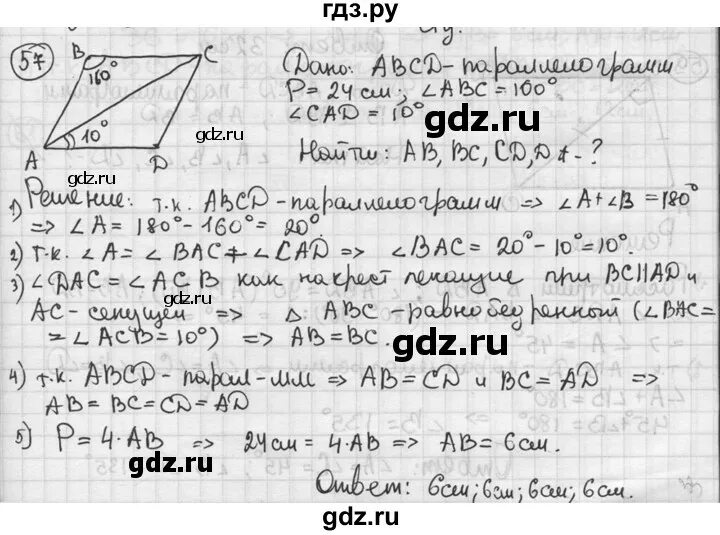 гдз.ру
57
B C
160°
10°
A D
Дано: ABCD - параллелограмм
P = 24 см; ∠ABC = 160°
∠CAD = 10°
Найти: AB, BC, CD, DA - ?
Решение:
1) т.к. ABCD - параллелограмм => ∠A + ∠B = 180°
=> ∠A = 180° - 160° = 20°.
2) т.к. ∠A = ∠BAC + ∠CAD => ∠BAC = 20° - 10° = 10°.
3) ∠DAC = ∠ACB как накрест лежащие при BC||AD и
AC - секущей => △ ABC - равнобедренный (∠BAC =
= ∠ACB = 10°) => AB = BC.
4) т.к. ABCD - парал-мм => AB = CD и BC = AD =>
AB = BC = CD = AD
5) P = 4·AB => 24 см = 4·AB => AB = 6 см.
Ответ: 6см; 6см; 6см; 6см.
gdz.ru
gdz.ru
gdz.ru
gdz.ru
gdz.ru
gdz.ru
gdz.ru
gdz.ru
гдз.ру